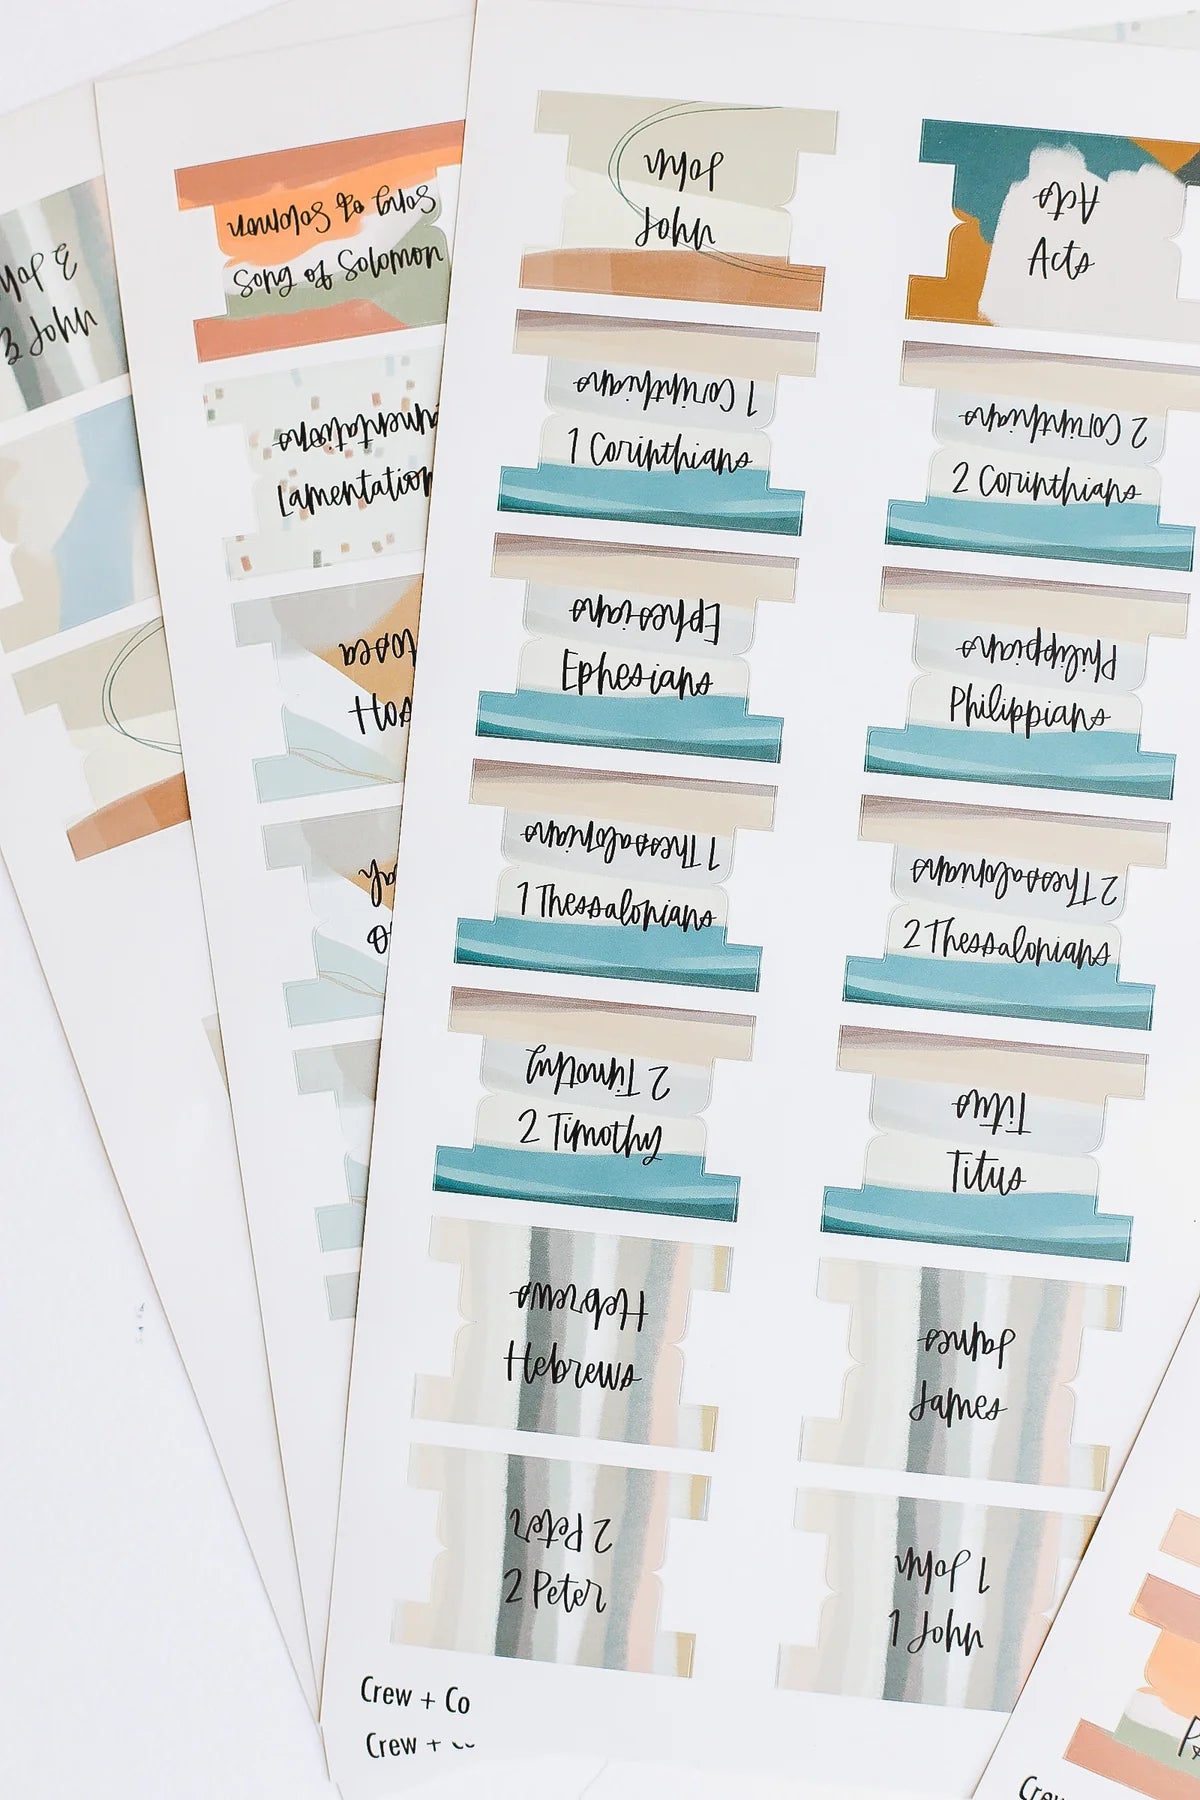 3 John
3 John
Song of Solomon
Song of Solomon
Lamentations
Hosea
John
John
Acts
Acts
1 Corinthians
1 Corinthians
2 Corinthians
2 Corinthians
Ephesians
Ephesians
Philippians
Philippians
1 Thessalonians
1 Thessalonians
2 Thessalonians
2 Thessalonians
2 Timothy
2 Timothy
Titus
Titus
Hebrews
Hebrews
James
James
2 Peter
2 Peter
1 John
1 John
Crew + Co
Crew +